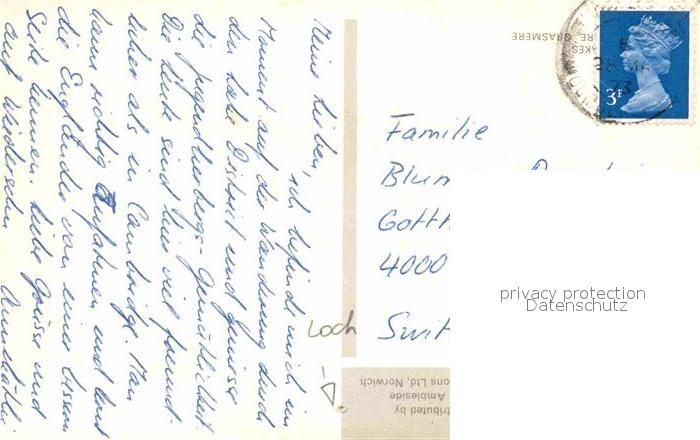 Meine Lieben,
ich befinde mich im
Moment auf der Wanderung durch
den Lake District und geniesse
die Jugendherbergs-Gemütlichkeit.
Die Leute sind hier viel freund-
licher als in Cambridge. Man
kann richtig aufatmen und lernt
die Engländer von einer bessern
Seite kennen. Liebe Grüsse und
auf Wiedersehn
Familie
Blum
Gotth
4000
Swit
Loch
3P
AKES
RE, GRASMERE
tributed by
Ambleside
ons Ltd, Norwich
privacy protection
Datenschutz